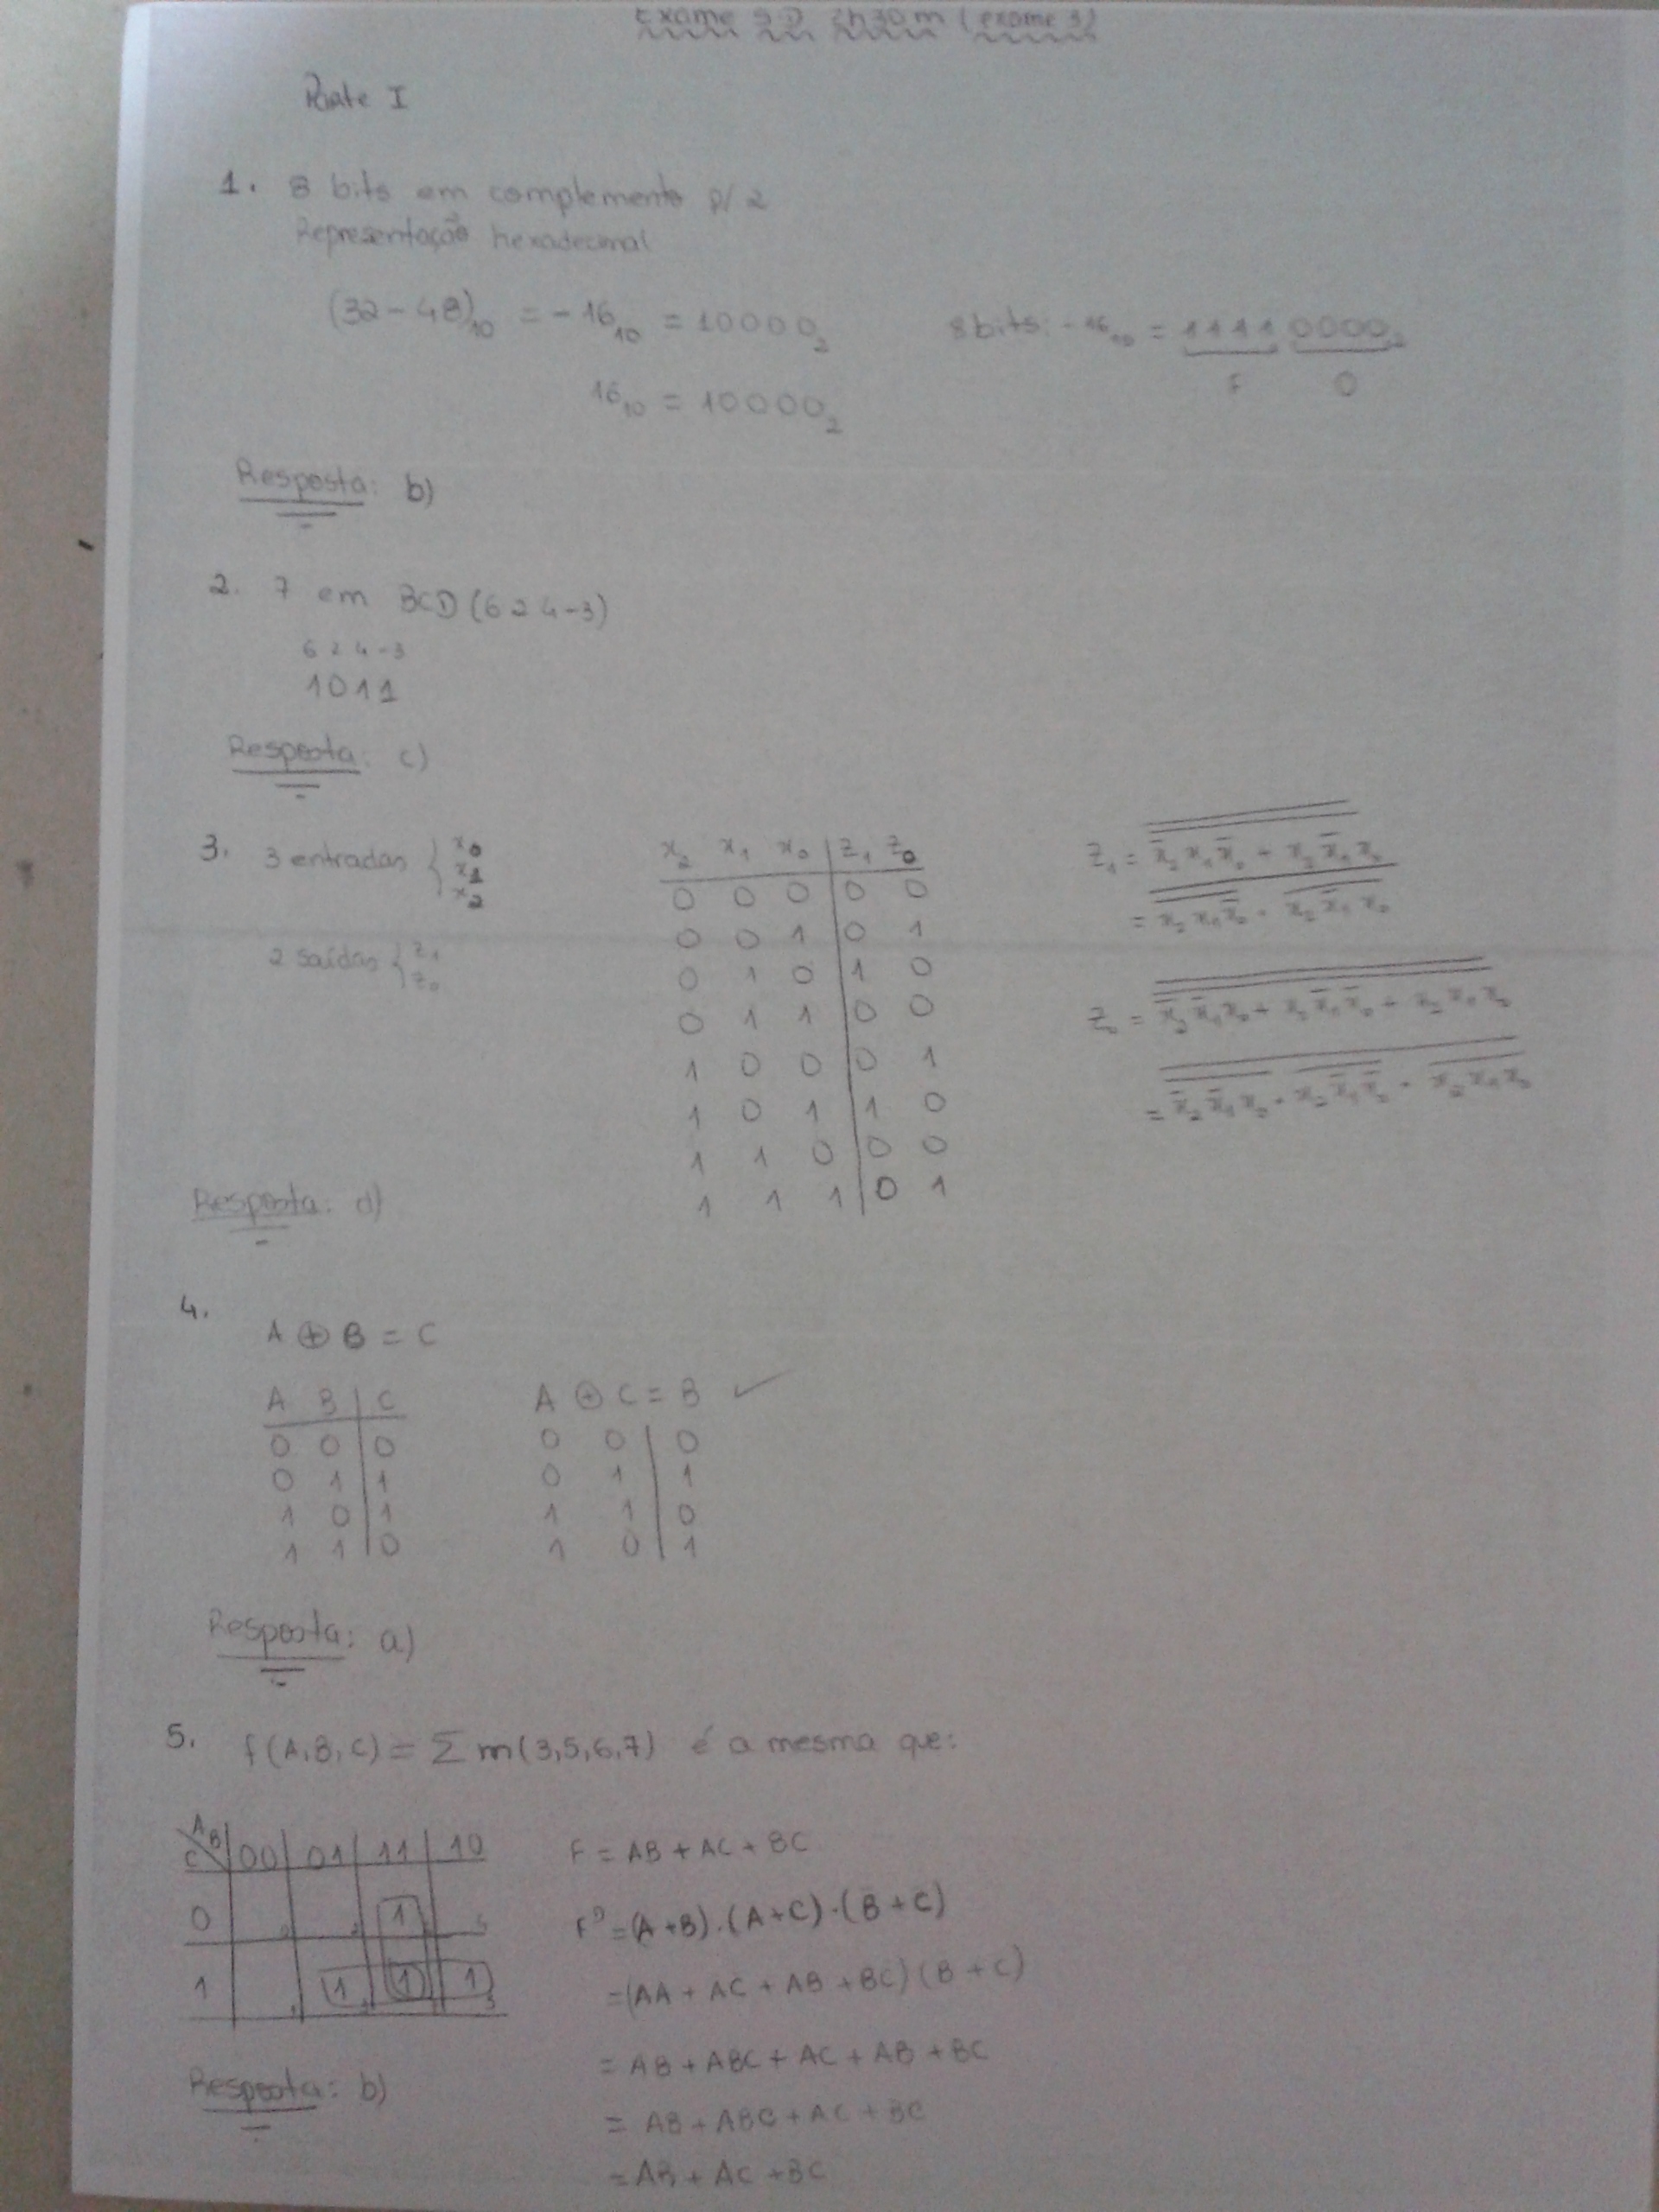 Exame SD 2h30m (exame 3)
Parte I
1. 8 bits em complemento p/ 2
Representação hexadecimal
(32-48)₁₀ = -16₁₀ = 10000₂   8 bits: -16₁₀ = 1111 0000₂
F 0
16₁₀ = 10000₂
Resposta: b)
2. 7 em BCD (6 2 4 -3)
6 2 4 -3
1 0 1 1
Resposta: c)
3. 3 entradas { x0 x1 x2
2 saídas { z₁ z₀
x₂ x₁ x₀ | z₁ z₀
0 0 0 | 0 0
0 0 1 | 0 1
0 1 0 | 1 0
0 1 1 | 0 0
1 0 0 | 0 1
1 0 1 | 1 0
1 1 0 | 0 0
1 1 1 | 0 1
Z₁ =
Z₀ =
Resposta: d)
4.
A ⊕ B = C
A B | C
0 0 | 0
0 1 | 1
1 0 | 1
1 1 | 0
A ⊕ C = B ✓
0 0 | 0
0 1 | 1
1 1 | 0
1 0 | 1
Resposta: a)
5. f(A,B,C) = Σ m(3,5,6,7) é a mesma que:
AB
C 00 01 11 10
0 1
1 1 1 1
F = AB + AC + BC
Fᴰ = (A+B).(A+C).(B+C)
= (AA + AC + AB + BC)(B+C)
= AB + ABC + AC + AB + BC
= AB + ABC + AC + BC
= AB + AC + BC
Resposta: b)